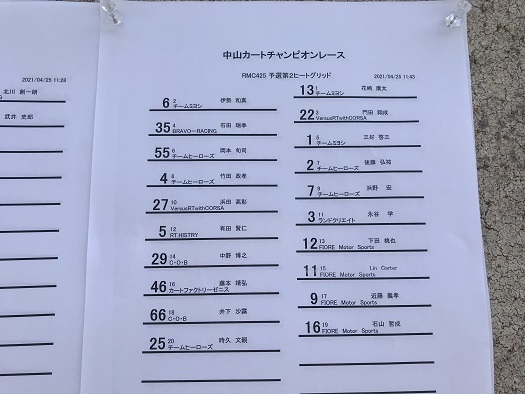 2021/04/25 11:28
北川 創一朗
武井 史郎
中山カートチャンピオンレース
RMC425 予選第2ヒートグリッド
2021/04/25 11:43
13 1 花崎 庸太
チームミヨシ
6 2 伊勢 和真
チームミヨシ
22 3 門田 翔成
VersusRTwithCORSA
35 4 石田 瑞季
BRAVO-RACING
1 5 三好 啓三
チームミヨシ
55 6 岡本 旬司
チームヒーローズ
2 7 後藤 弘祐
チームヒーローズ
4 8 竹田 政孝
チームヒーローズ
7 9 浜野 宏
チームヒーローズ
27 10 浜田 高彰
VersusRTwithCORSA
3 11 永谷 学
ランドクリエイト
5 12 有田 賢仁
RT.HISTRY
12 13 下田 桃也
FIORE Motor Sports
29 14 中野 博之
C・O・B
11 15 Lin Carter
FIORE Motor Sports
46 16 藤本 靖弘
カートファクトリーゼニス
9 17 近藤 善孝
FIORE Motor Sports
66 18 井下 沙露
C・O・B
16 19 石山 智成
FIORE Motor Sports
25 20 時久 文親
チームヒーローズ